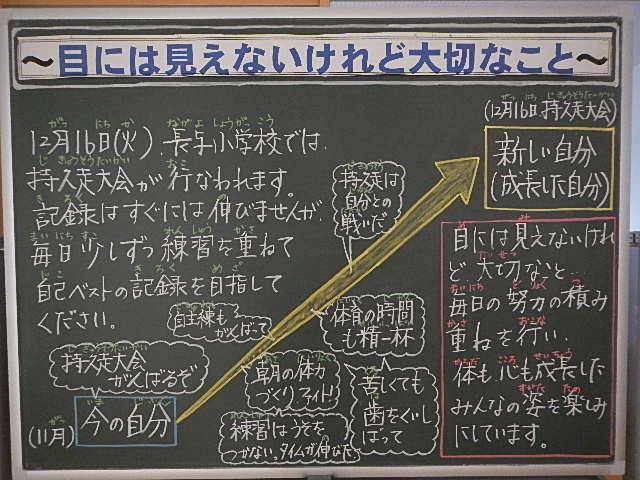 ～目には見えないけれど大切なこと～
12月16日(火) 長与小学校では、
持久走大会が行なわれます。
記録はすぐには伸びませんが、
毎日少しずつ練習を重ねて
自己ベストの記録を目指して
ください。
(12月16日 持久走大会)
新しい自分
(成長した自分)
持久走は
自分との
戦いだ
自主練も
がんばって
体育の時間
も精一杯
持久走大会
がんばるぞ
朝の体力
づくり、ファイト!
苦しくても
歯をくいし
ばって
練習はうそを
つかない。タイムが伸びた。
(11月)
今の自分
目には見えないけれ
ど大切なこと…
毎日の努力の積み
重ねを行い、
体も心も成長した
みんなの姿を楽しみ
にしています。